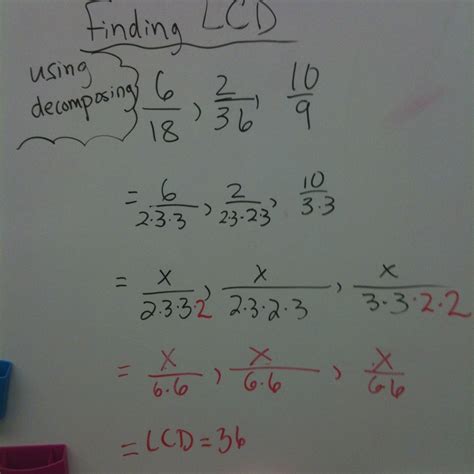 Finding LCD
using
decomposing
6/18, 2/36, 10/9
= 6/2·3·3, 2/2·3·2·3, 10/3·3
= x/2·3·3·2, x/2·3·2·3, x/3·3·2·2
= x/6·6, x/6·6, x/6·6
= LCD = 36